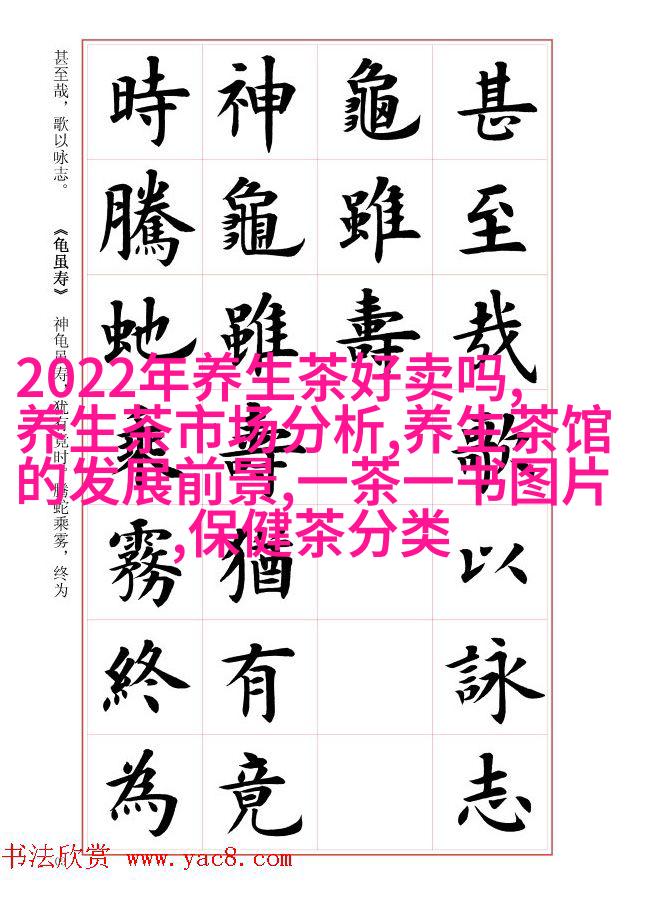 甚至哉歌以詠志
龜雖壽
神龜雖壽猶有竟
時騰虵乘霧終為
甚至哉，歌以咏志。 《龟虽寿》 神龟虽寿，犹有竟时。腾蛇乘雾，终为
2022年养生茶好卖吗,
养生茶市场分析,养生茶馆
的发展前景,一茶一书图片
,保健茶分类
书法欣赏 www.yac8.com